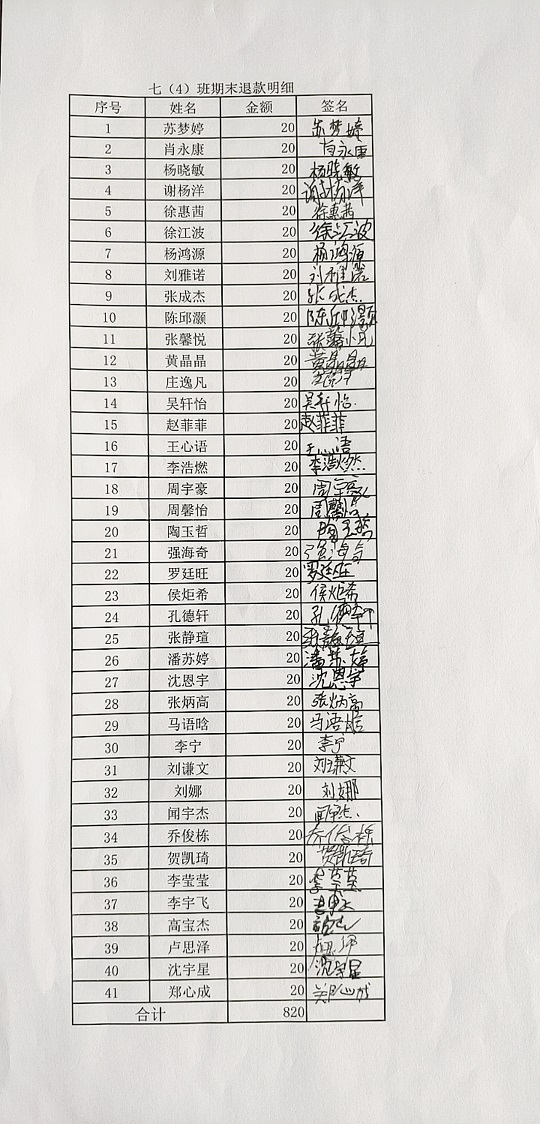 七（4）班期末退款明细
序号 姓名 金额 签名
1 苏梦婷 20 苏梦婷
2 肖永康 20 肖永康
3 杨晓敏 20 杨晓敏
4 谢杨洋 20 谢杨洋
5 徐惠茜 20 徐惠茜
6 徐江波 20 徐江波
7 杨鸿源 20 杨鸿源
8 刘雅诺 20 刘雅诺
9 张成杰 20 张成杰
10 陈邱灏 20 陈邱灏
11 张馨悦 20 张馨悦
12 黄晶晶 20 黄晶晶
13 庄逸凡 20
14 吴轩怡 20 吴轩怡
15 赵菲菲 20 赵菲菲
16 王心语 20 王心语
17 李浩燃 20 李浩燃
18 周宇豪 20 周宇豪
19 周馨怡 20 周馨怡
20 陶玉哲 20 陶玉哲
21 强海奇 20 强海奇
22 罗廷旺 20 罗廷旺
23 侯炬希 20 侯炬希
24 孔德轩 20 孔德轩
25 张静瑄 20 张静瑄
26 潘苏婷 20 潘苏婷
27 沈恩宇 20 沈恩宇
28 张炳高 20 张炳高
29 马语晗 20 马语晗
30 李宁 20 李宁
31 刘谦文 20 刘谦文
32 刘娜 20 刘娜
33 闻宇杰 20 闻宇杰
34 乔俊栋 20 乔俊栋
35 贺凯琦 20 贺凯琦
36 李莹莹 20 李莹莹
37 李宇飞 20
38 高宝杰 20
39 卢思泽 20
40 沈宇星 20 沈宇星
41 郑心成 20 郑心成
合计 820